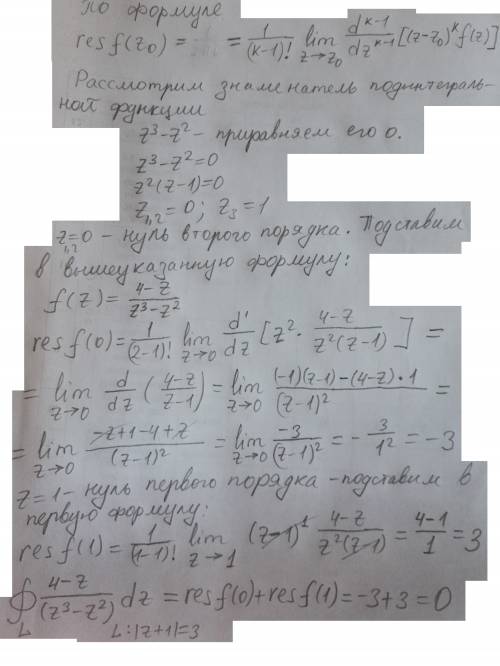 по формуле
res f(z₀) = = 1/(k-1)! lim z→z₀ d^(k-1)/dz^(k-1) [(z-z₀)^k f(z)]
Рассмотрим знаменатель подинтеграль-
ной функции
z³-z² - приравняем его 0.
z³-z²=0
z²(z-1)=0
z₁,₂=0; z₃=1
z=0 - нуль второго порядка. Подставим
в вышеуказанную формулу:
f(z) = (4-z)/(z³-z²)
res f(0) = 1/(2-1)! lim z→0 d'/dz [z² · (4-z)/(z²(z-1))] =
= lim z→0 d/dz ((4-z)/(z-1)) = lim z→0 ((-1)(z-1)-(4-z)·1)/(z-1)² =
= lim z→0 (-z+1-4+z)/(z-1)² = lim z→0 -3/(z-1)² = -3/1² = -3
z=1 - нуль первого порядка - подставим в
первую формулу:
res f(1) = 1/(1-1)! lim z→1 (z-1)¹ (4-z)/(z²(z-1)) = (4-1)/1 = 3
∮ (4-z)/(z³-z²) dz = res f(0) + res f(1) = -3+3 = 0
L L: |z+1|=3